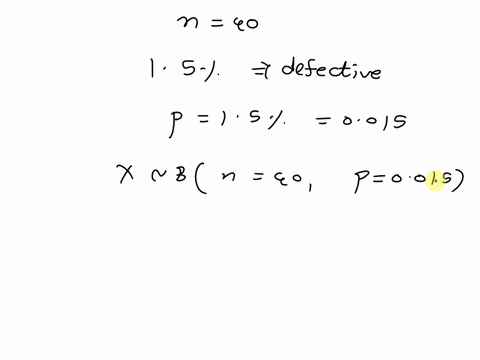 n = 40
1.5% ⇒ defective
p = 1.5% = 0.015
X ~ B( n = 40, p=0.015)